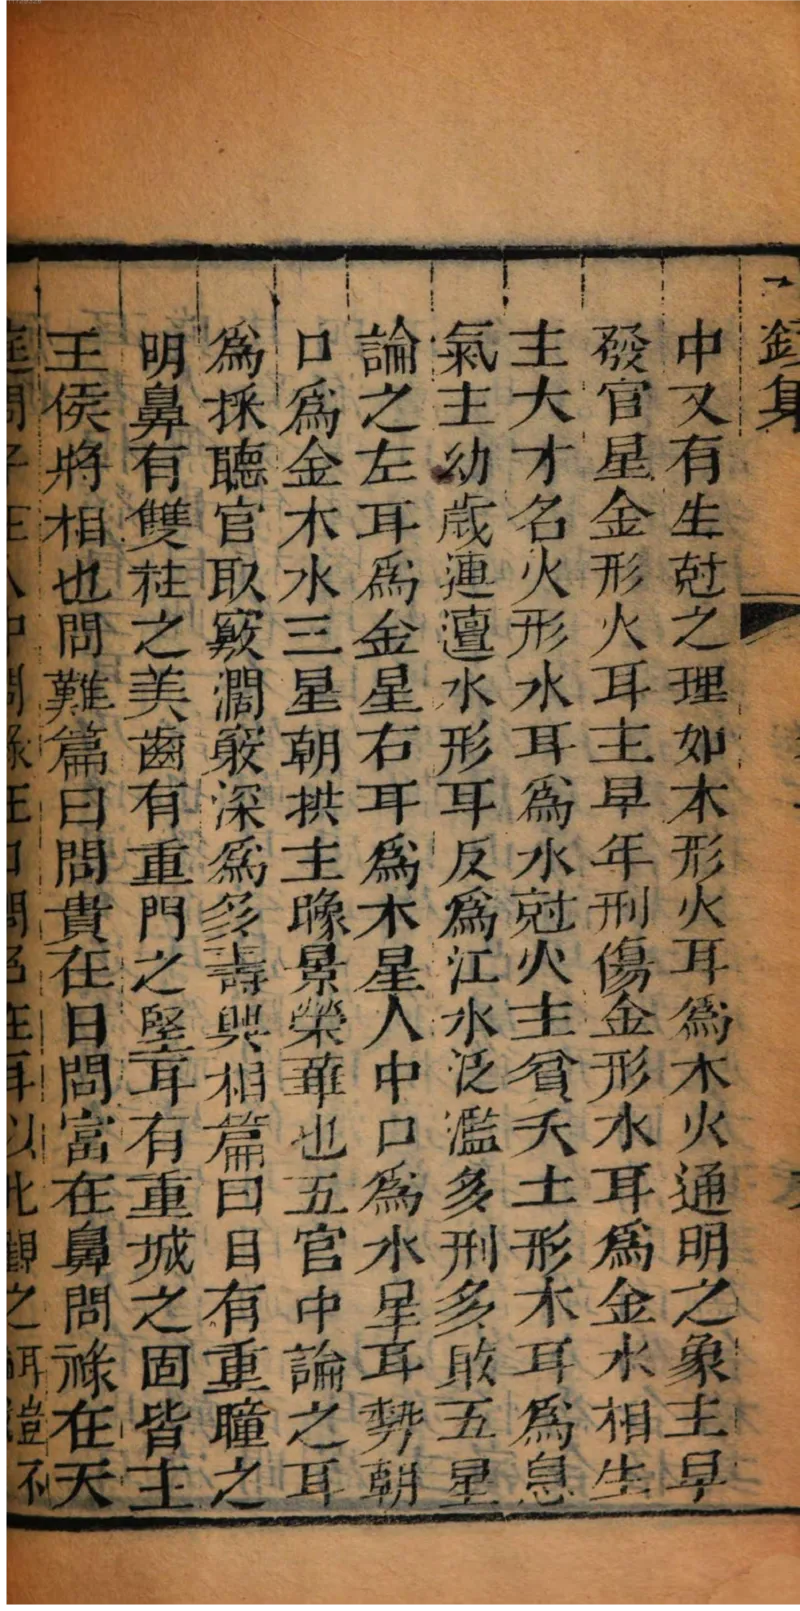 錄集
中又有生尅之理如木形火耳爲木火通明之象主早
發官星金形火耳主早年刑傷金形水耳爲金水相生
主大才名火形水耳爲水尅火主貧夭土形木耳爲息
氣主幼歲迍邅水形耳反爲江水泛濫多刑多敗五星
論之左耳爲金星右耳爲木星人中口爲水星耳勢朝
口爲金木水三星朝拱主臁景榮華也五官中論之耳
爲採聽官取竅濶竅深爲多壽與相篇曰目有重瞳之
明鼻有雙柱之美齒有重門之堅耳有重城之固皆主
王侯將相也問難篇曰問貴在目問富在鼻問祿在天
庭問子在人中問祿在口問名在耳以此觀之耳豈不